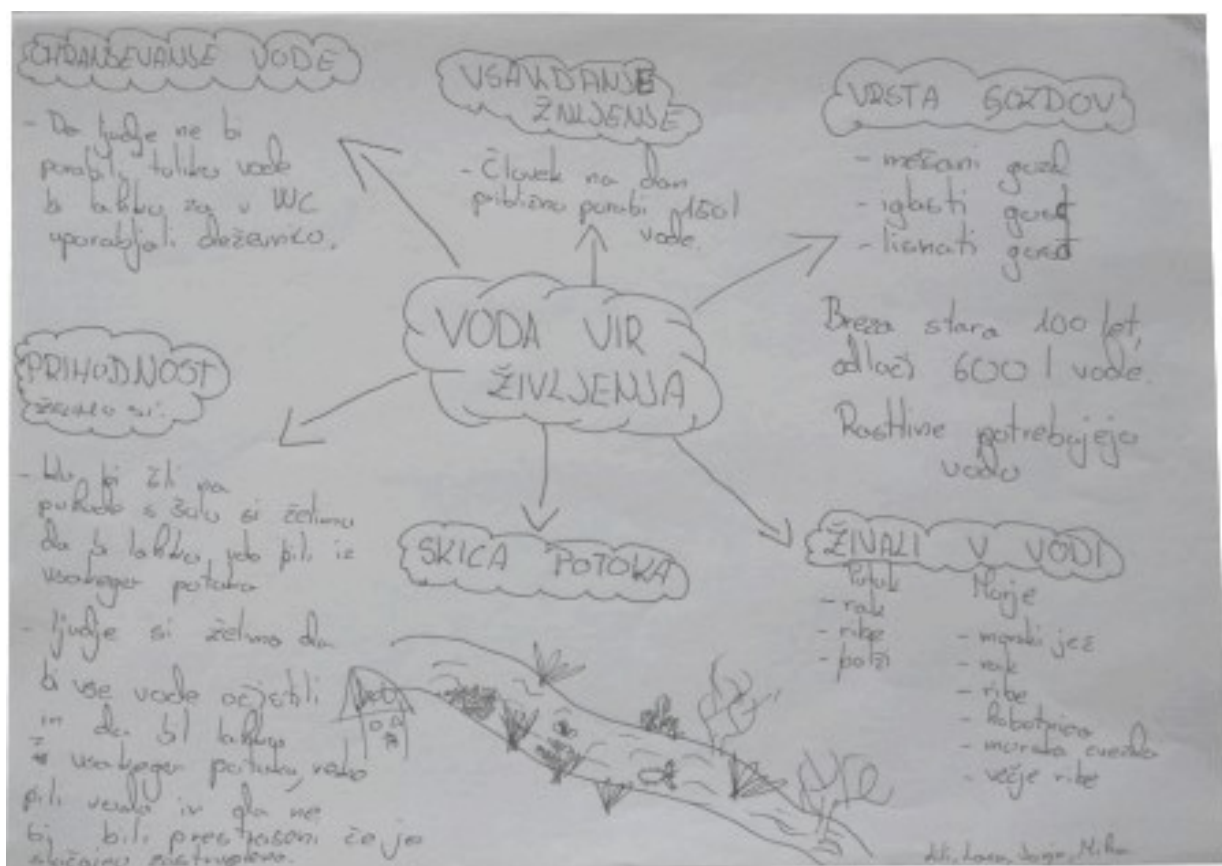 OHRANJEVANJE VODE
- Da ljudje ne bi
porabili toliko vode
bi lahko za v WC
uporabljali deževnico.
VSAKDANJE
ŽIVLJENJE
- Človek na dan
približno porabi 150 l
vode.
VRSTA GOZDOV
- mešani gozd
- iglasti gozd
- listnati gozd
Breza stara 100 let,
odlači 600 l vode.
Rastline potrebujejo
vodo
VODA VIR
ŽIVLJENJA
PRIHODNOST
želimo si:
- bi šli na
pohod s šolo si želimo
da bi lahko vodo pili iz
vsakega potoka
- ljudje si želimo da
bi vse vode očistili
in da bi lahko
iz vsakega potoka vodo
pili in ne
bi bili prestrašeni če je
slučajno zastrupljena.
SKICA POTOKA
ŽIVALI V VODI
Potok
- rak
- ribe
- polži
Morje
- morski jež
- rak
- ribe
- hobotnica
- morska zvezda
- večje ribe